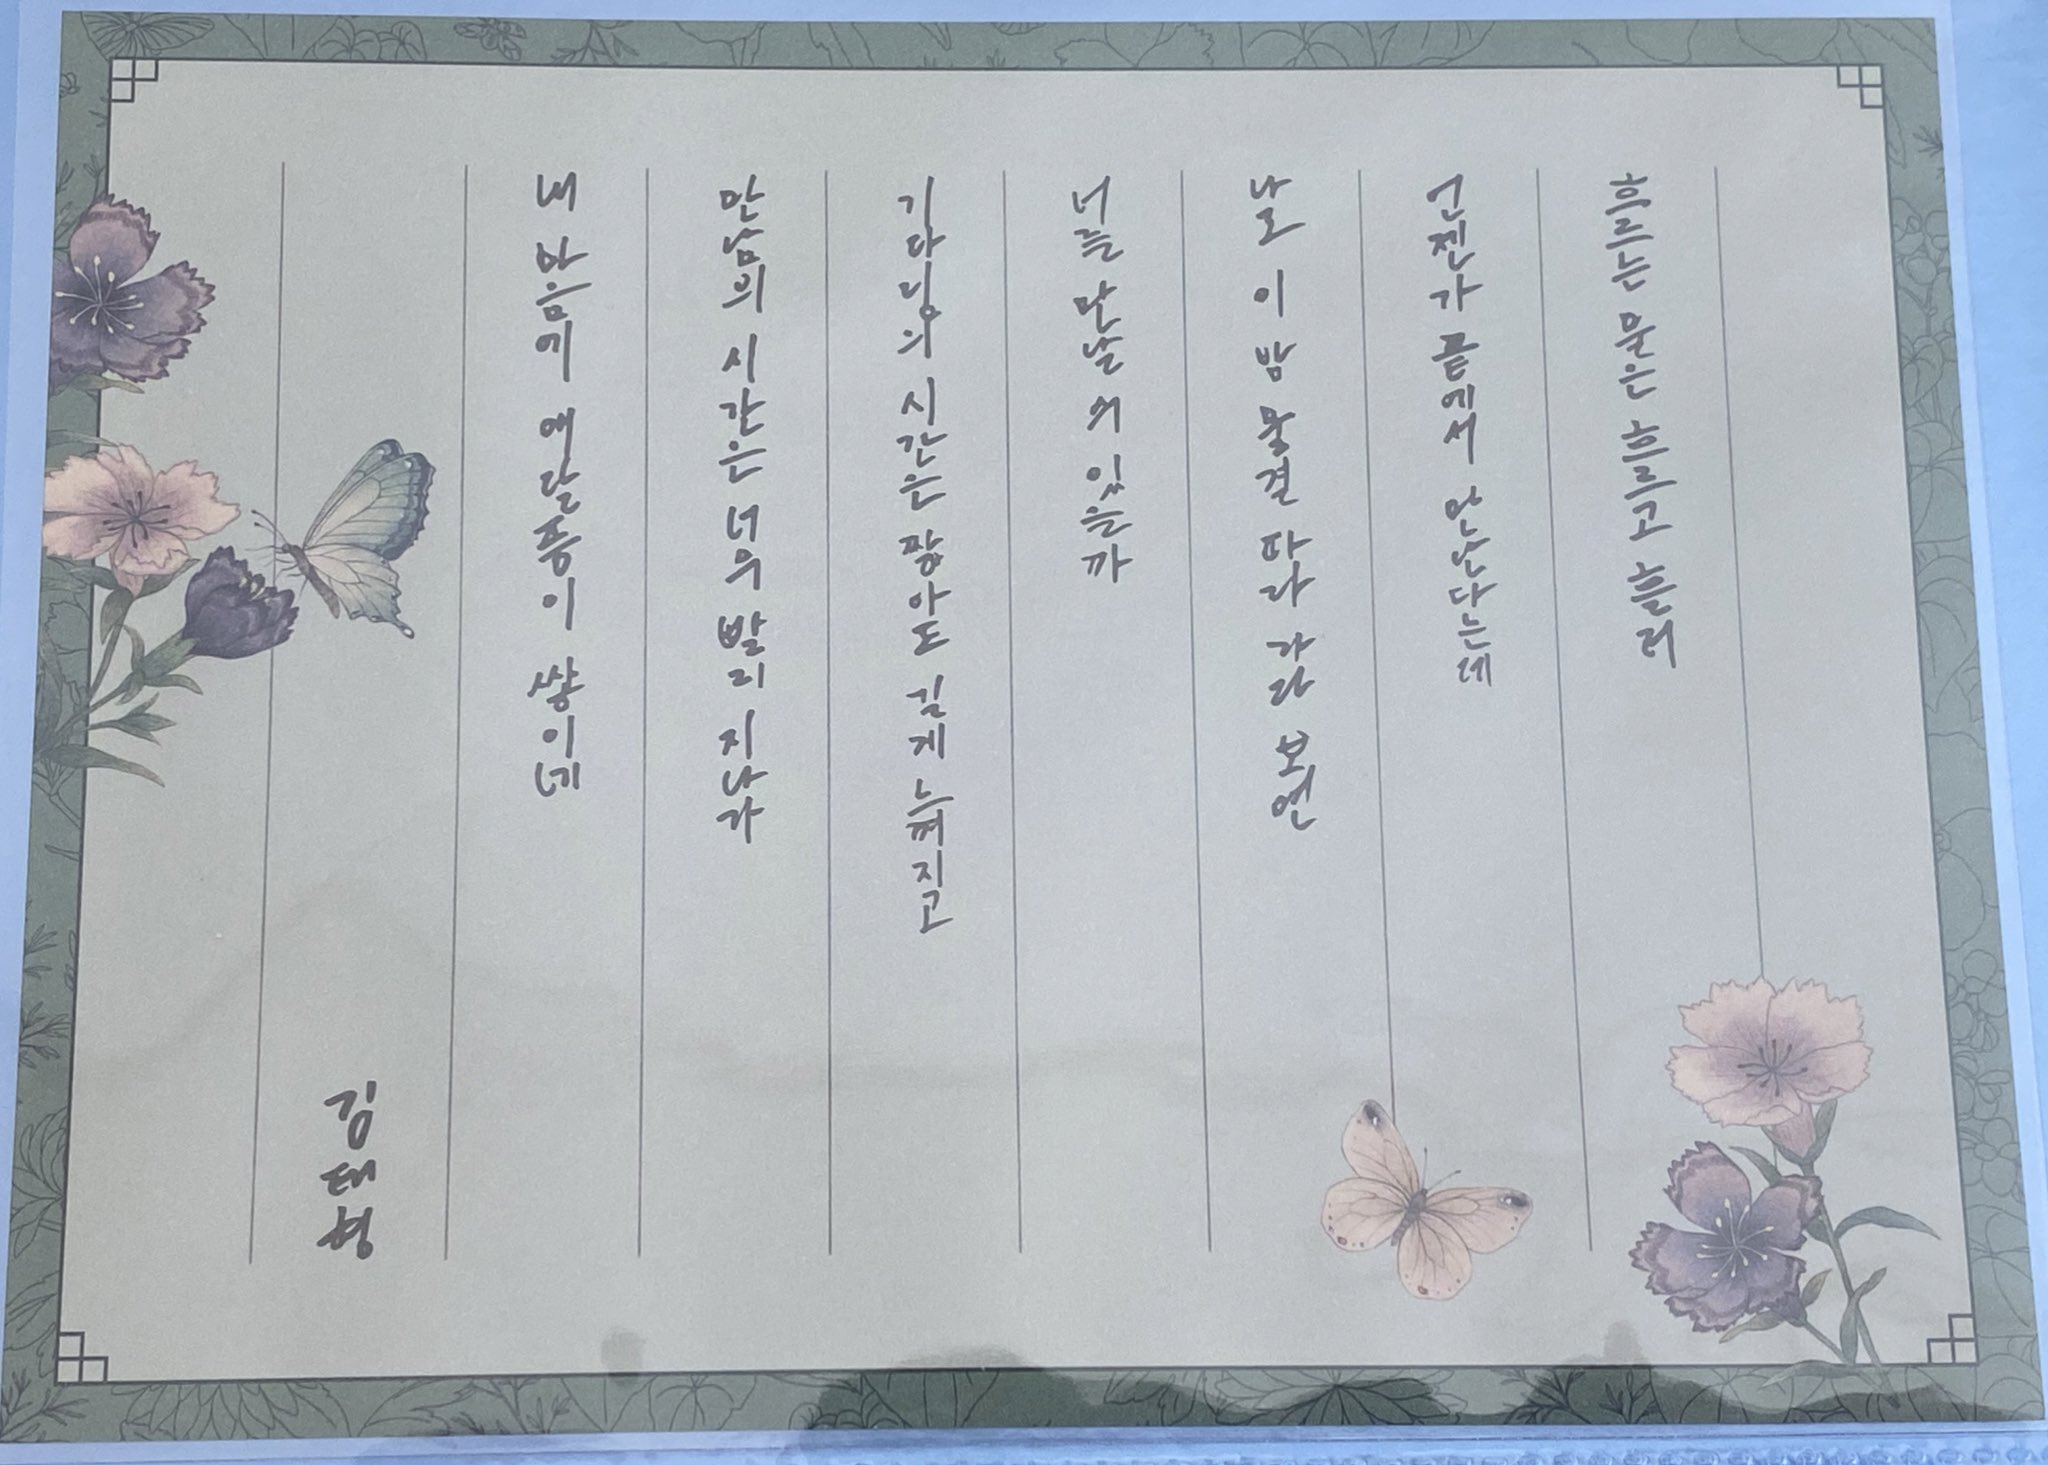 흐르는 물은 흐르고 흘러
언젠가 끝에서 만난다는데
나도 이 밤 물결 따라 가다 보면
너를 만날 수 있을까
기다림의 시간은 짧아도 길게 느껴지고
만남의 시간은 너무 빨리 지나가
내 마음에 애달픔이 쌓이네
김태형